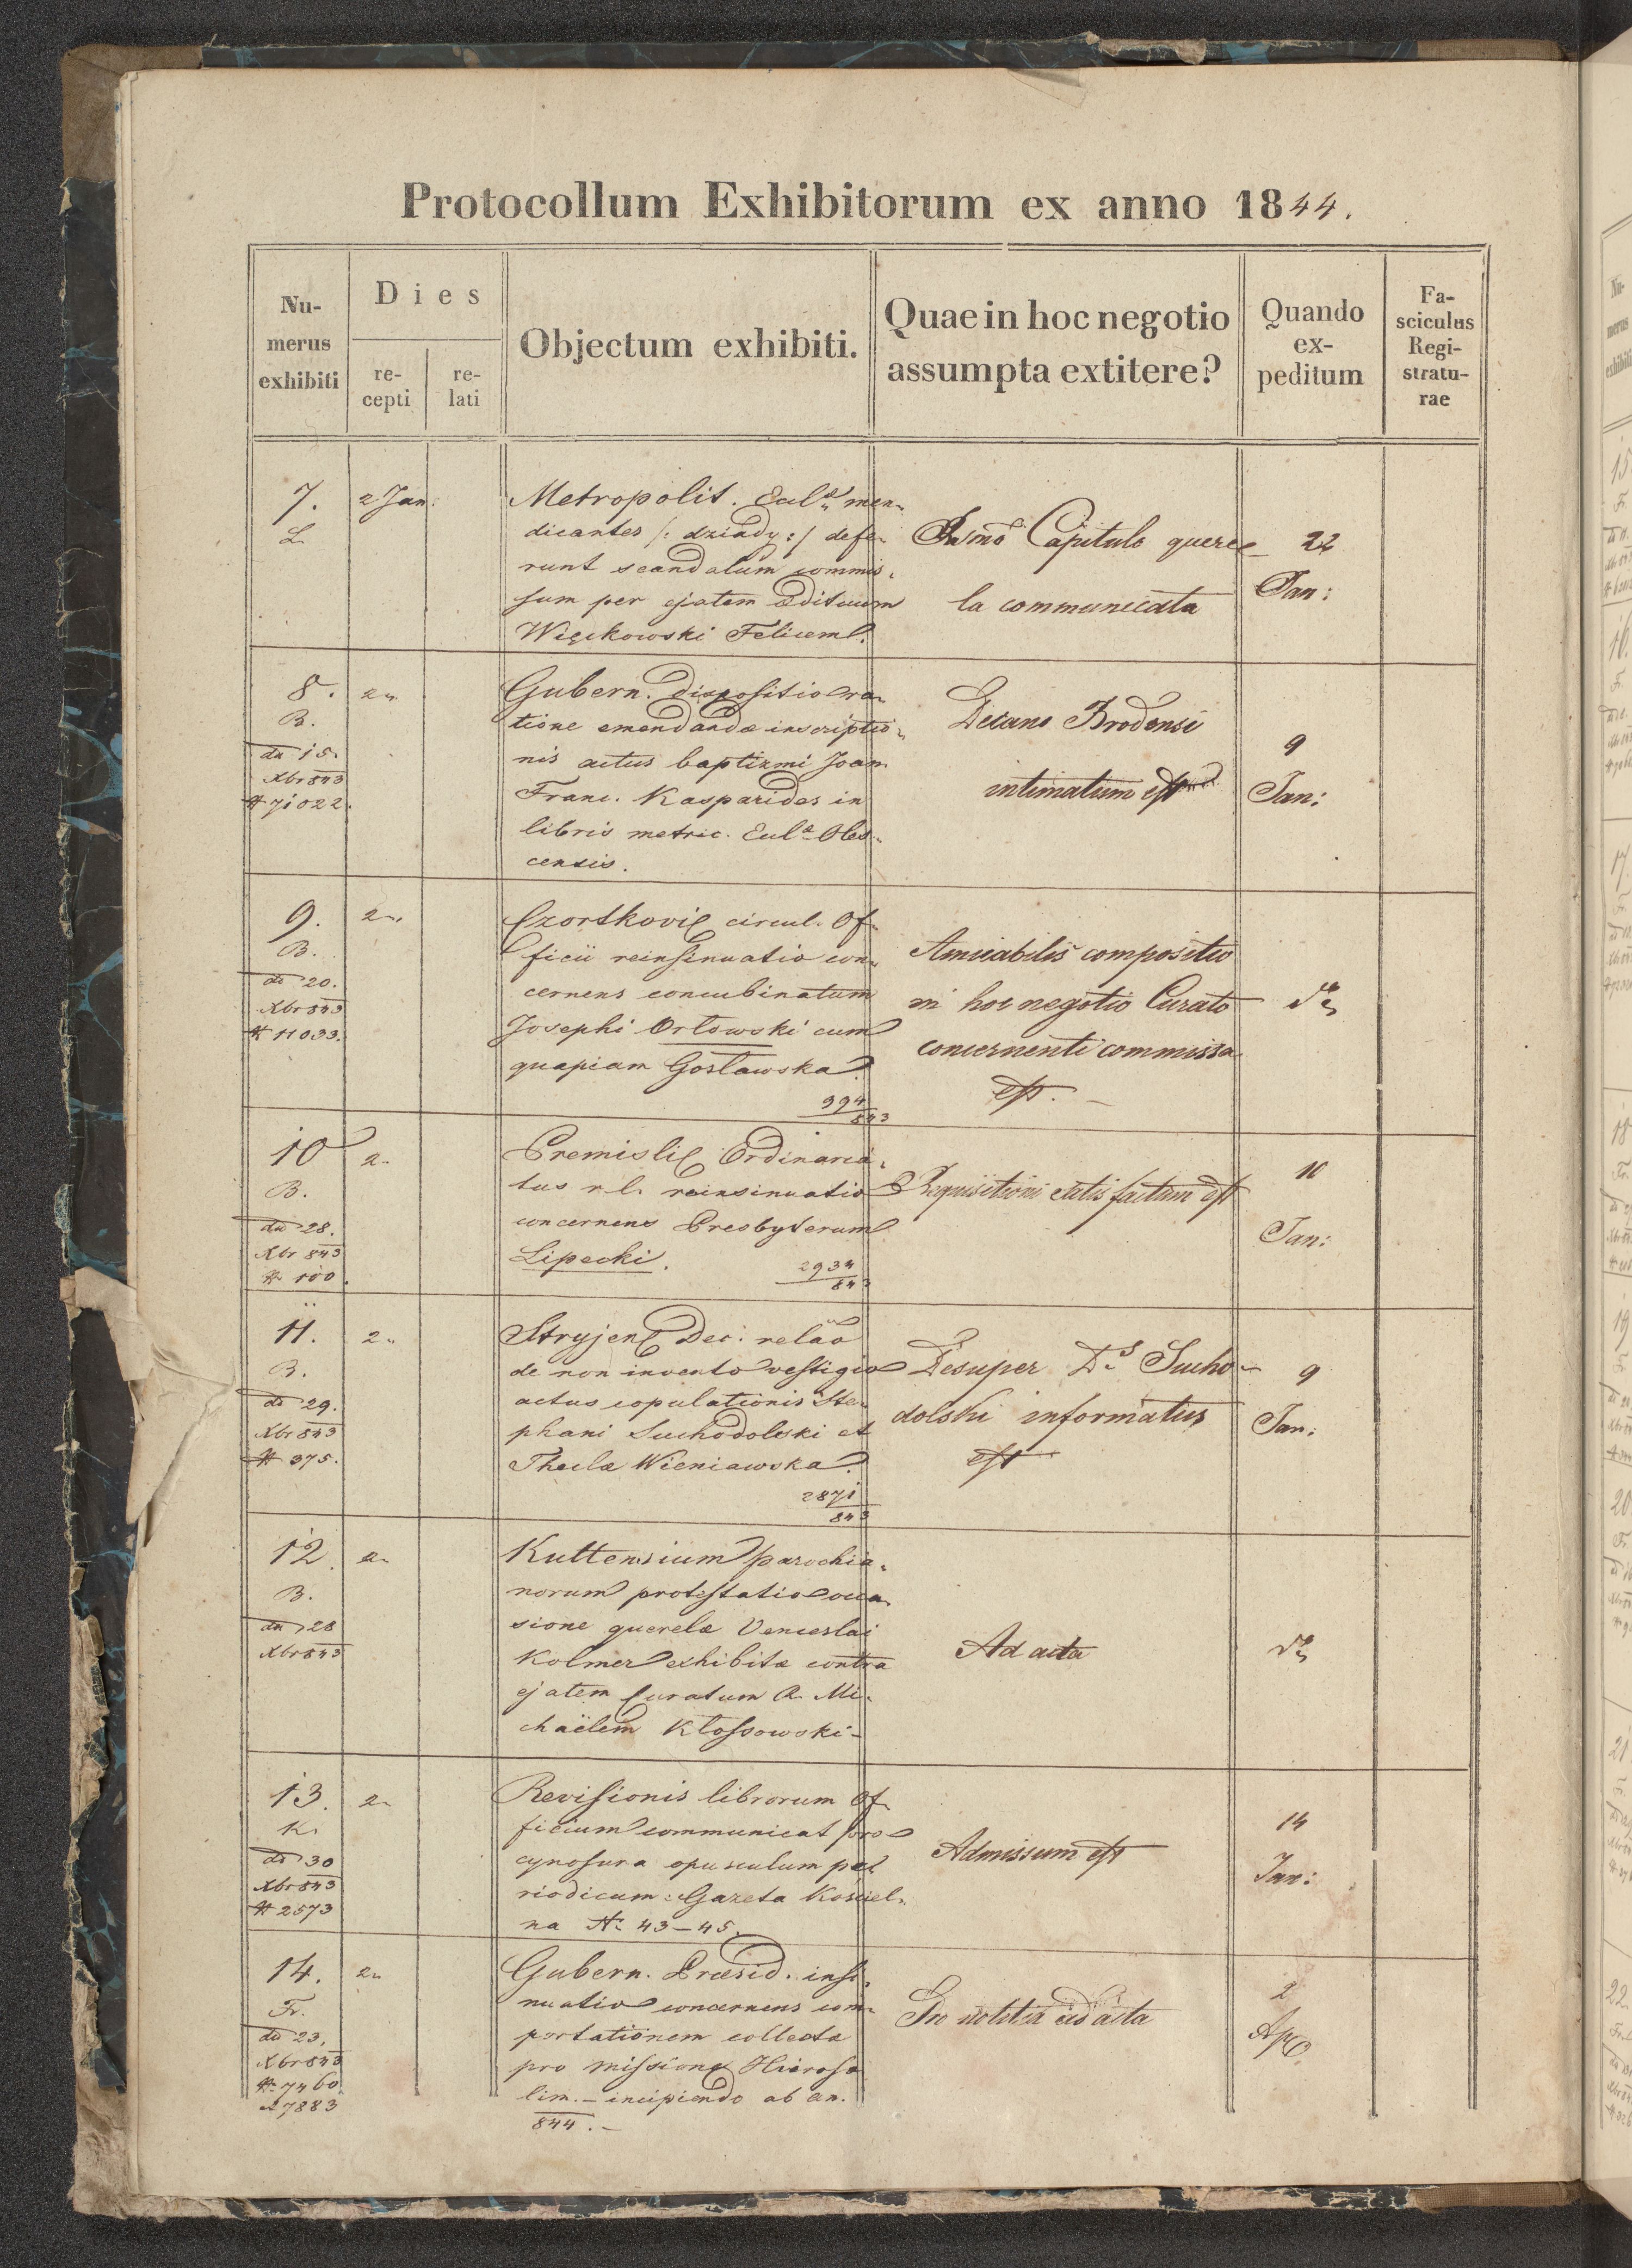 Protocollum Exhibitorum ex anno 1844.
Nu-
merus
exhibiti
Dies
re-
cepti
re-
lati
Objectum exhibiti.
Quae in hoc negotio
assumpta extitere?
Quando
ex-
peditum
Fa-
sciculus
Regi-
stratu-
rae
7.
L
2 Jan:
Metropolit. Eccl. men-
dicantes /: dziady :/ defe-
runt scandalum commis-
sum per ejatem ædituum
Więckowski Felicem.
Capitulo quere
la communicata
22
Jan:
8.
B.
dd 15.
Xbr 843
# 71022.
2
Gubern. dispositio ra-
tione emendandæ inscriptio-
nis actus baptizmi Joan.
Franc. Kasparides in
libris metric. Eccl. Oles-
censis.
Decano Brodensi
intimatum est
9
Jan:
9.
B.
dd 20.
Xbr 843
# 11033.
2
Czortkovi circul. Of-
ficii reinsinuatio con-
cernens concubinatum
Josephi Orłowski cum
quapiam Gosławska.
994
843
Amicabilis compositio
in hoc negotio Curato
concernenti commissa
est.
10
B.
dd 28.
Xbr 843
# 100.
2
Premisli Ordinaria-
tus r. l. reinsinuatio
concernens Presbyterum
Lipecki.
2934
843
Requisitioni satisfactum est
10
Jan:
11.
B.
dd 29.
Xbr 843
# 375.
2
Stryjen Dec. relao
de non invento vestigio
actus copulationis Ste-
phani Suchodolski et
Theclæ Wieniawska.
2871
843
Desuper Ds Sucho-
dolski informatus
est
9
Jan:
12.
B.
dd 28
Xbr 843
2
Kuttensium parochia-
norum protestatio occa-
sione querelæ Venceslai
Kolmer exhibitæ contra
ejatem Curatum R. Mi-
chaëlem Kłossowski-
Ad acta
13.
K.
dd 30
Xbr 843
# 2573
2
Revisionis librorum Of-
ficium communicat pro
cynosura opusculum pe
riodicum: Gazeta Kosciel-
na N. 43-45.
Admissum est
14
Jan:
14.
Fr.
dd 23.
Xbr 843
# 7460.
et 7883
2
Gubern. Præsid. insi-
nuatio concernens com-
portationem collectæ
pro missione Hieroso
lim. - incipiendo ab an.
844.-
Pro notitia ad acta
2
Apr